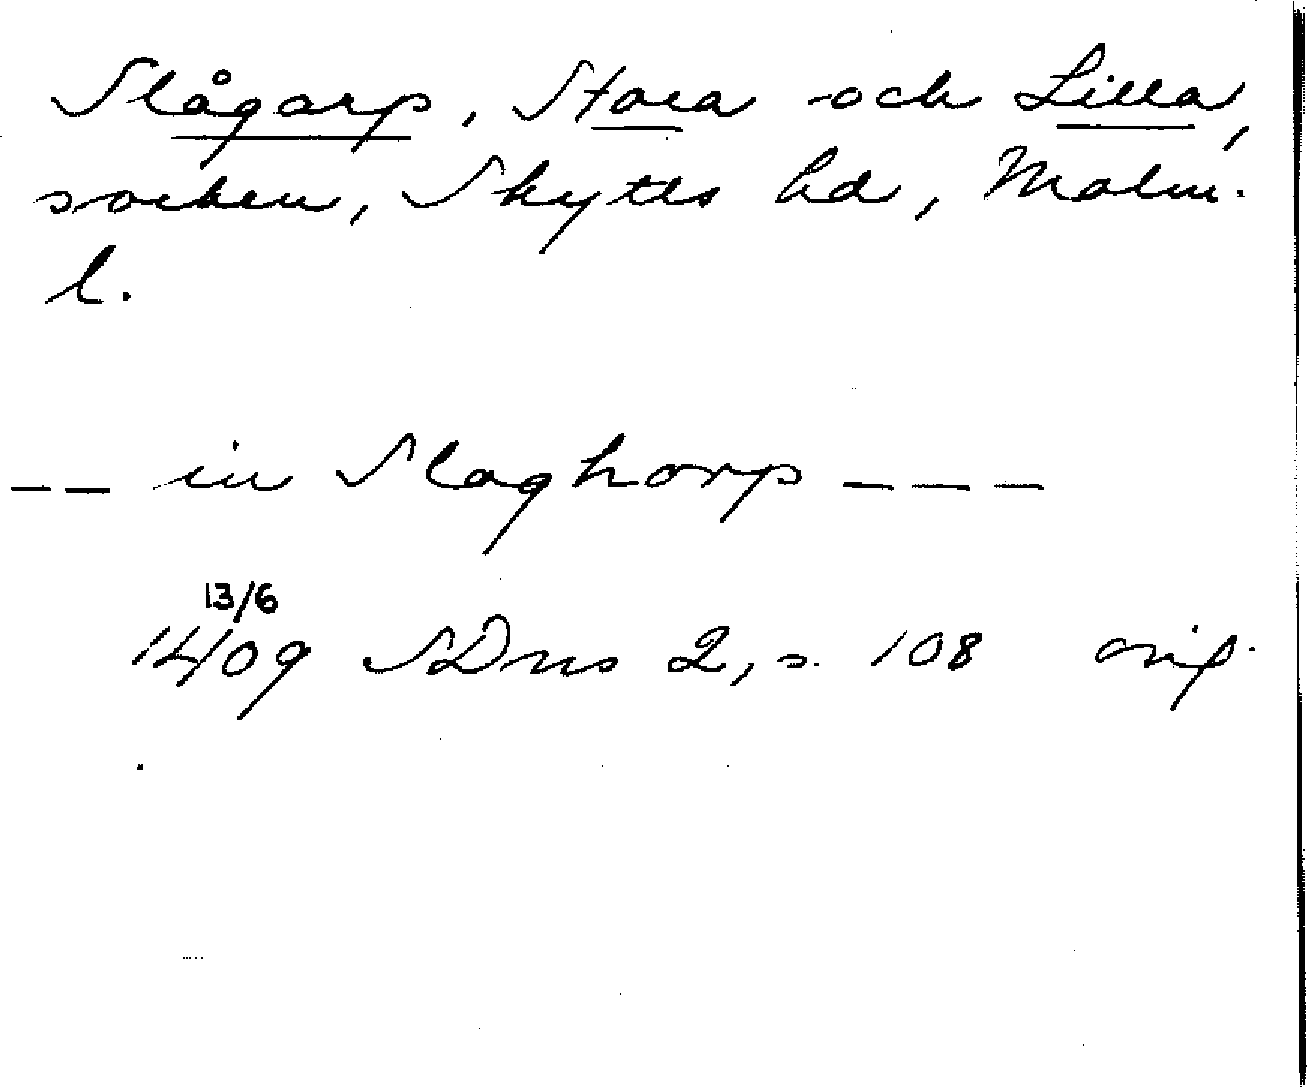 Slågarp, Stora och Lilla,
socken, Skytts hd, Malm.
l.
-- in Slaghorp ---
13/6
1409 SDns 2, s. 108 orig.